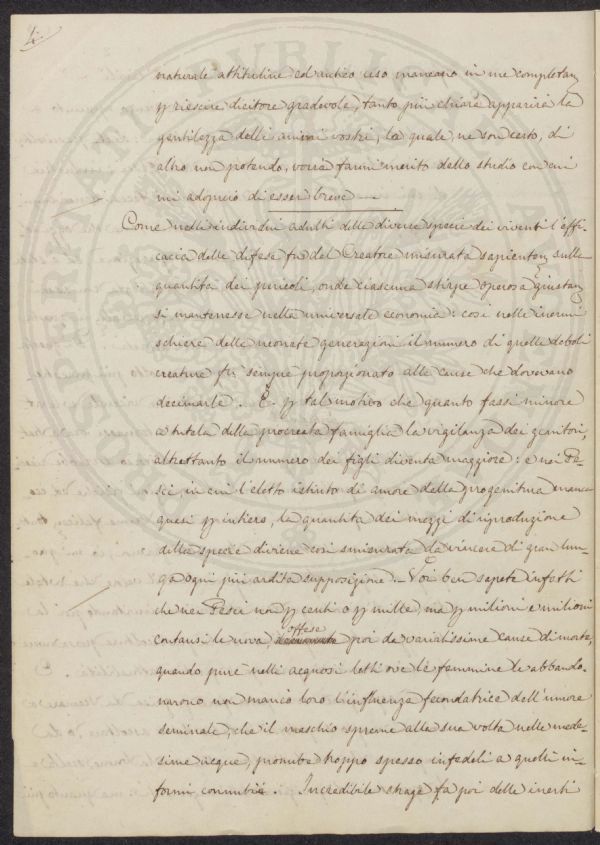 4.
naturale attitudine ed antico uso mancano in me completam.
p riescire dicitore gradevole, tanto più chiara apparirà la
gentilezza delli animi vostri, la quale, ne son certo, di
altro non potendo, vorrà farmi merito dello studio con cui
mi adoprerò di esser breve
Come nelle individui adulti delle diverse specie dei viventi l'effi-
cacia delle difese fu dal Creatore misurata sapientem. sulla
quantità dei pericoli, onde ciascuna stirpe operosa giustam.
si mantenesse nella universale economia: così nelle inermi
schiere delle neonate generazioni il numero di quelle deboli
creature fu sempre proporzionato alle cause che dovevano
decimarle. E p tal motivo che quanto fassi minore
a tutela della procreata famiglia la vigilanza dei genitori,
altrettanto il numero dei figli diventa maggiore: e nei Pe-
sci in cui l'eletto istinto di amore della progenitura manca
quasi p intiero, la quantità dei mezzi di riproduzione
della specie diviene così smisurata da vincere di gran lun-
ga ogni più ardita supposizione. Voi ben sapete infatti
che nei Pesci non p centi o p mille, ma p milioni e milioni
contansi le nova, offese poi da variatissime cause di morte,
quando pure nelli acquosi letti ove le femmine le abbando-
narono non mancò loro l'influenza fecondatrice dell'umore
seminale, che il maschio spreme alla sua volta nelle mede-
sime acque, pronube troppo spesso infedeli a quelli in-
formi connubii. Incredibile strage fa poi delle inerti